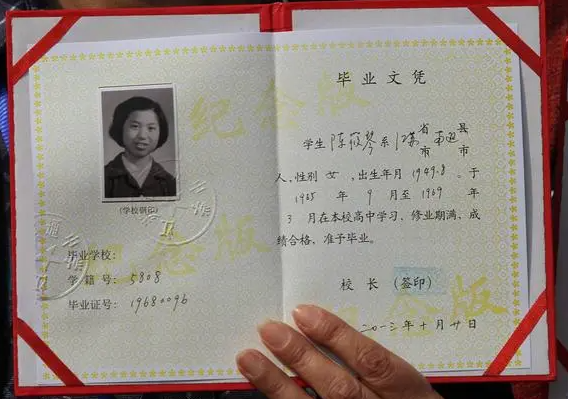 纪念版
(学校钢印)
毕业学校:
学籍号: 5808
毕业证号: 19680096
纪念版
毕业文凭
学生 陈筱琴 系 江苏 省市 南通 县市
人,性别 女 ,出生年月 1949.8. 于
1965 年 9 月至 1969 年
3 月在本校高中学习,修业期满,成
绩合格,准予毕业。
校 长 (签印)
纪念版
二〇一二年十月廿日